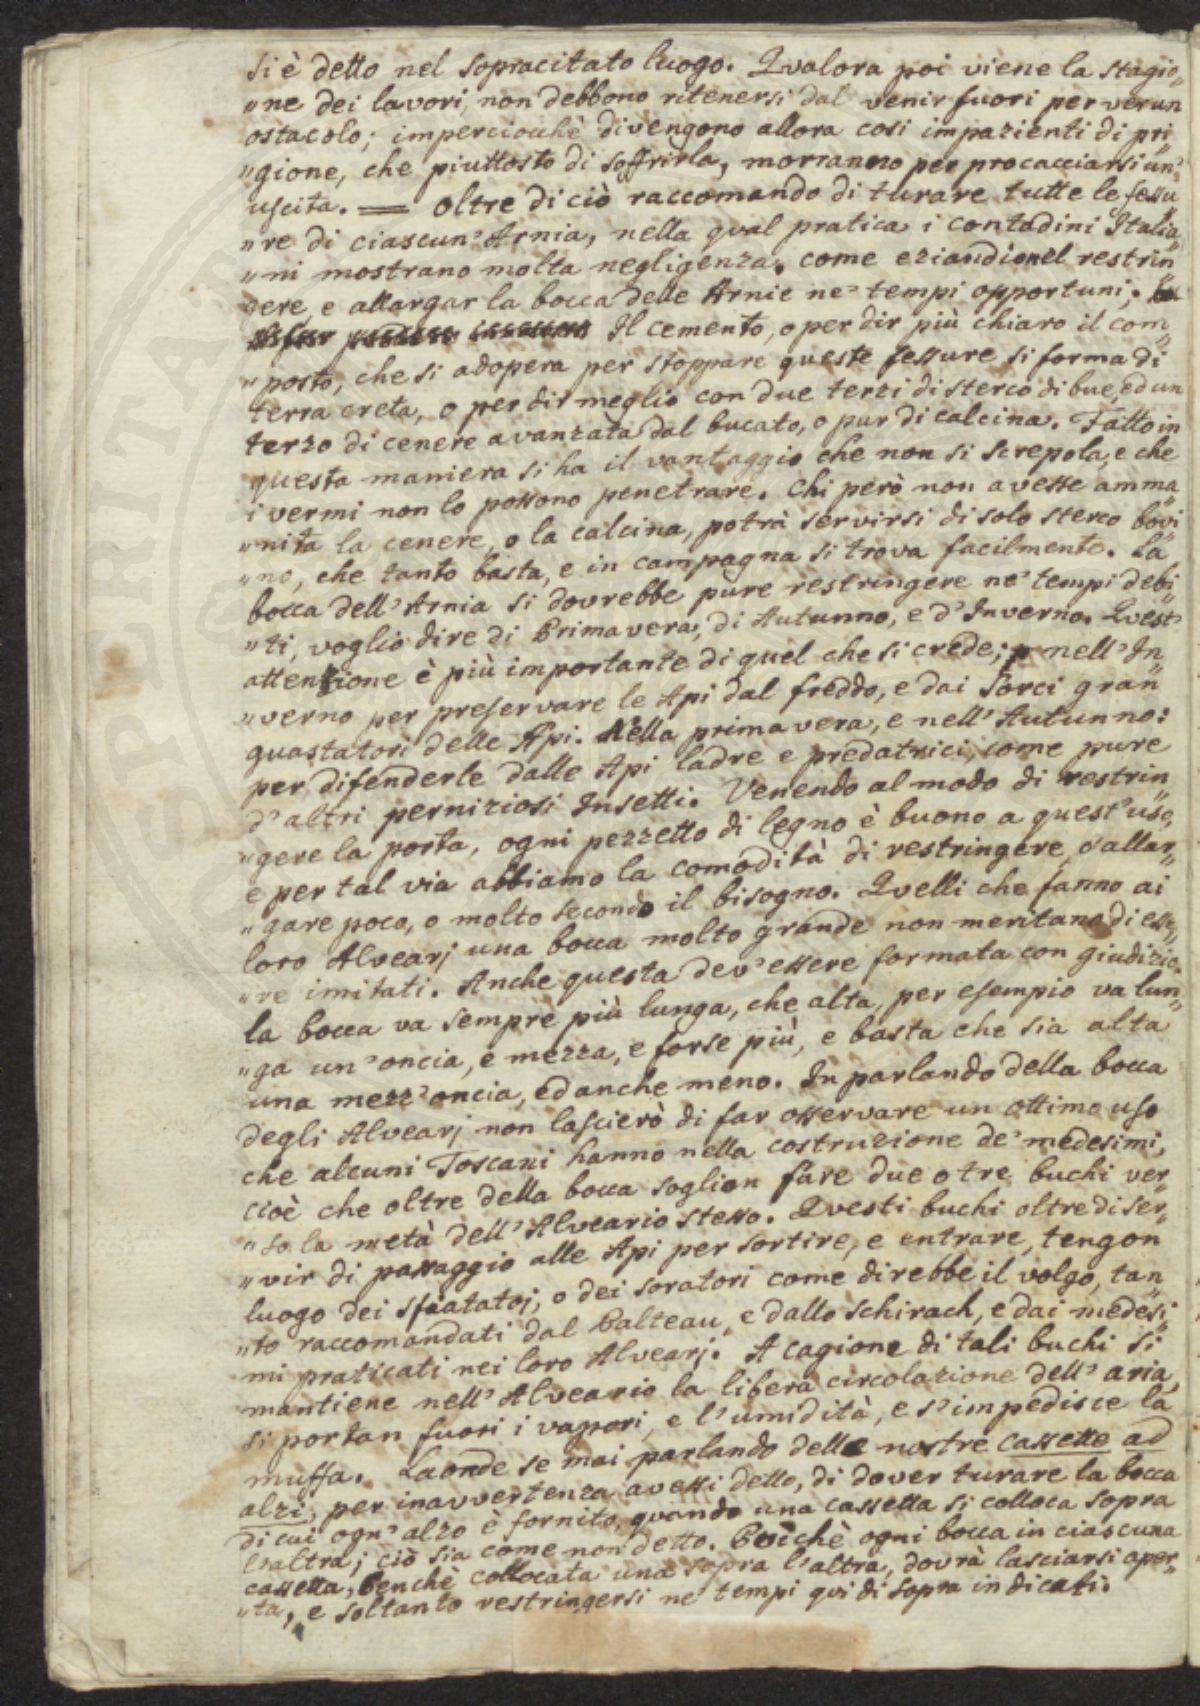 si è detto nel sopracitato luogo. Qvalora poi viene la stagio„
„ne dei lavori, non debbono ritenersi dal venir fuori per verun
ostacolo; imperciocchè divengono allora cosi impazienti di pri„
„gione, che piuttosto di soffrirla, morranno per procacciarsi un'
uscita. == Oltre di ciò raccomando di turare tutte le fessu„
„re di ciascun' Arnia, nella qval pratica i contadini Italia„
„ni mostrano molta negligenza. come eziandionel restrin„
gere, e allargar la bocca delle Arnie ne' tempi opportuni.
Il cemento, o per dir più chiaro il com„
„posto, che si adopera per stoppare queste fessure si forma di
terra creta, o per dir meglio con due terzi di sterco di bue, ed un
terzo di cenere avanzata dal bucato, o pur di calcina. Fatto in
questa maniera si ha il vantaggio che non si screpola, e che
i vermi non lo possono penetrare. Chi però non avesse amma„
„nita la cenere, o la calcina, potrà servirsi di solo sterco bovi„
„no, che tanto basta, e in campagna si trova facilmente. La
bocca dell'Arnia si dovrebbe pure restringere ne' tempi debi„
„ti, voglio dire di Primavera, di Autunno, e d'Inverno. Qvest'
attenzione è più importante di quel che si crede; nell'In„
„verno per preservare le Api dal freddo, e dai Sorci gran
guastatori delle Api. Nella primavera, e nell'Autunno:
per difenderle dalle Api ladre e predatrici, come pure
d'altri perniziosi Insetti. Venendo al modo di restrin„
„gere la porta, ogni pezzetto di legno è buono a quest'uso,
e per tal via abbiamo la comodità di restringere, o allar„
„gare poco, o molto secondo il bisogno. Qvelli che fanno ai
loro Alvearj una bocca molto grande non meritano di esse„
„re imitati. Anche questa dev'essere formata con giudizio.
la bocca va sempre più lunga, che alta, per esempio va lun„
„ga un'oncia, e mezza, e forse più, e basta che sia alta
una mezz'oncia, ed anche meno. In parlando della bocca
degli Alvearj non lascierò di far osservare un ottimo uso
che alcuni Toscani hanno nella costruzione de' medesimi,
cioè che oltre della bocca soglion fare due o tre buchi ver„
„so la metà dell'Alveario stesso. Qvesti buchi oltre di ser„
„vir di passaggio alle Api per sortire, e entrare, tengon
luogo dei sfiatatoj, o dei soratori come direbbe il volgo, tan„
„to raccomandati dal Palteau, e dallo Schirach, e dai medesi„
mi praticati nei loro Alvearj. A cagione di tali buchi si
mantiene nell'Alveario la libera circolazione dell'aria,
si portan fuori i vapori, e l'umidità, e s'impedisce la
muffa. Laonde se mai parlando delle nostre cassette ad
alzi, per inavvertenza avessi detto, di dover turare la bocca
di cui ogn'alzo è fornito, quando una cassetta si colloca sopra
l'altra; ciò sia come non detto. Poichè ogni bocca in ciascuna
cassetta, benchè collocata una sopra l'altra, dovrà lasciarsi aper„
„ta, e soltanto restringersi ne' tempi qvi di sopra indicati.